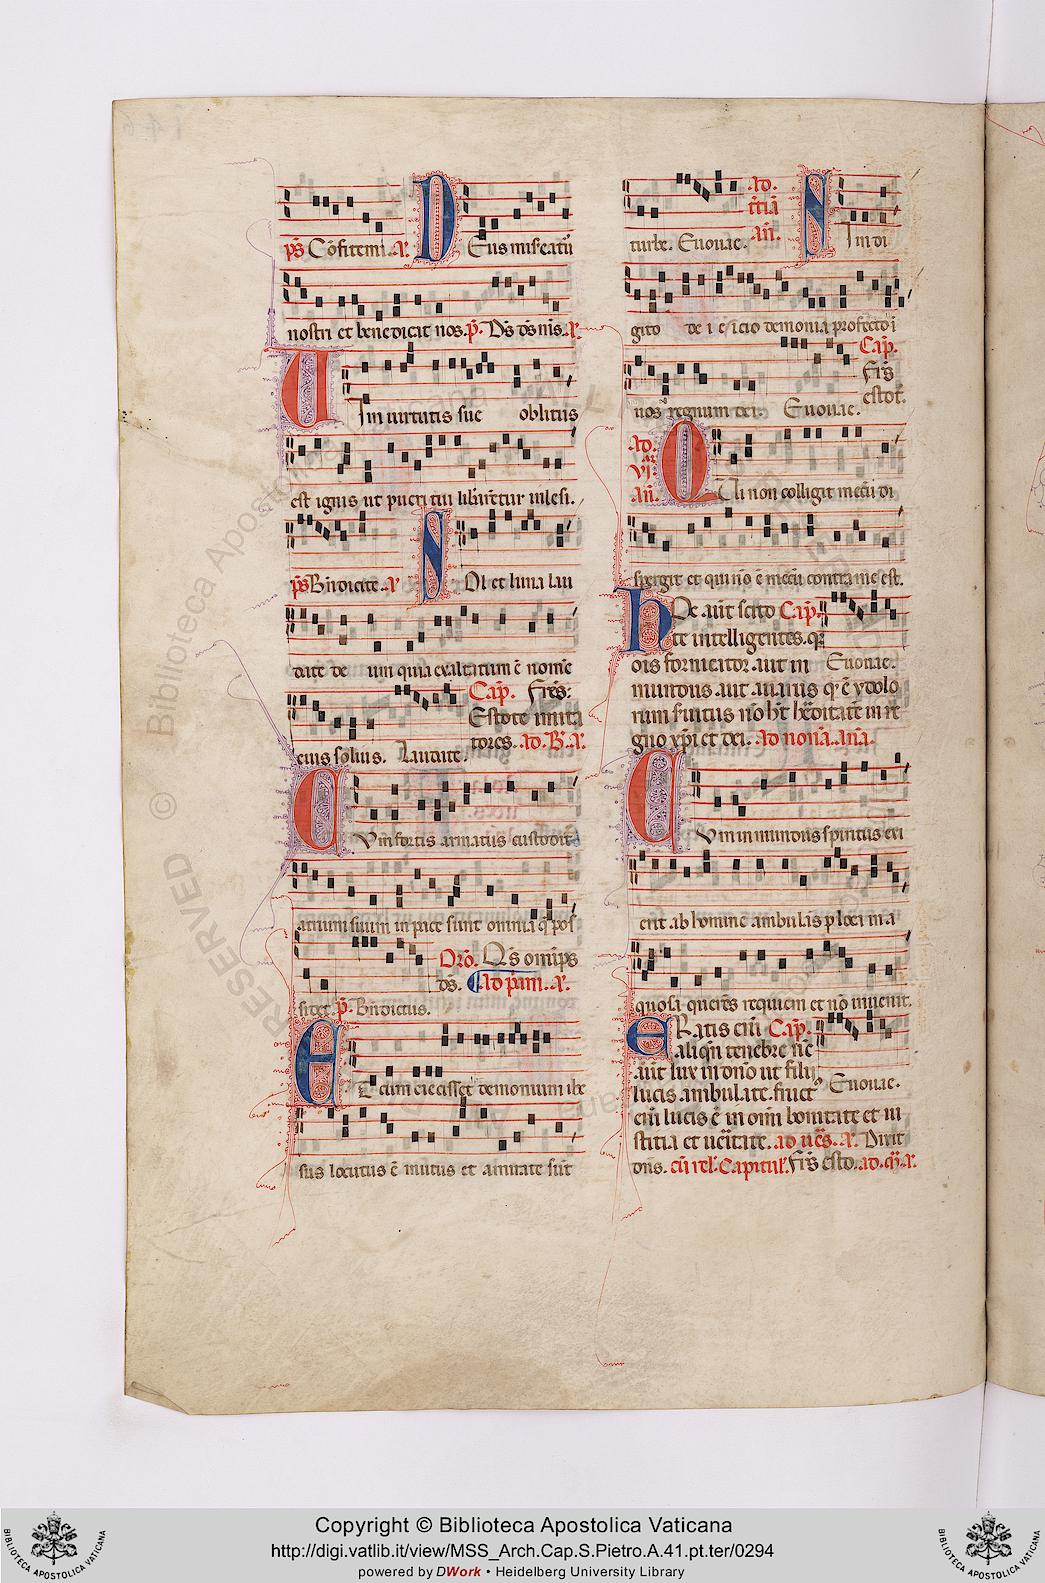 ps̄ Cōfitemi. a̅. DEus misereatur
nostri et benedicat nos. p̄. Ds̄ ds̄ ms̄. a̅.
Vim virtutis sue oblitus
est ignis ut pueri tui liberētur inlesi.
ps̄ Bn̄dicite. a̅ SOl et luna lau
date de um quia exaltatum ē nomē
eius solius. Laudate.
Cap̄. Frēs:
Estote imita
tores. ad. B. a̅.
CVm fortis armatus custodit
atrium suum in pace sunt omnia q̄ pos
sidet. p̄. Bn̄dictus.
Orō. Qs̄ omīps
ds̄. Ad prim̄. a̅.
ET cum eiecisset demonium ihe
sus locutus ē mutus et amirate sūt
turbe. Evovae.
ad.
t̄tiā
an̄.
SI in di
gito de i eicio demonia profecto ī
uos regnum dei. Evovae.
Cap̄.
Frēs
estot̄.
ad.
Vj.
an̄.
QUi non colligit mecū di
spergit et qui nō ē mecū contra me est.
HOc aut̄ scito Cap̄.
te intelligentes. q̄
ois fornicator. aut in Evovae.
mundus aut avarus q̄ ē ydolo
rum seruitus nō hēt hēditatē in re
gno xp̄i et dei. Ad nonā. anā.
CVm inmundus spiritus exi
erit ab homine ambulās p loca in a
quosa querēs requiem et nō inuenit.
ERatis eni Cap̄.
aliqn̄ tenebre nc̄
aut̄ lux in dn̄o ut filij
lucis ambulate. fruct Evovae.
eni lucis ē in omī bonitate et iu
stitia et ueritate. ad ves̄. a̅. Dixit
dn̄s. cū rel̄. Capitul̄. Frēs esto. ad. m̄. a̅.
Copyright © Biblioteca Apostolica Vaticana
http://digi.vatlib.it/view/MSS_Arch.Cap.S.Pietro.A.41.pt.ter/0294
powered by DWork • Heidelberg University Library